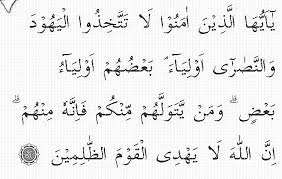 يٰۤاَيُّهَا الَّذِيْنَ اٰمَنُوْا لَا تَتَّخِذُوا الْيَهُوْدَ
وَالنَّصٰرٰٓى اَوْلِيَآءَ ؔ بَعْضُهُمْ اَوْلِيَآءُ
بَعْضٍ ؕ وَمَنْ يَّتَوَلَّهُمْ مِّنْكُمْ فَاِنَّهٗ مِنْهُمْ ؕ
اِنَّ اللّٰهَ لَا يَهْدِى الْقَوْمَ الظّٰلِمِيْنَ